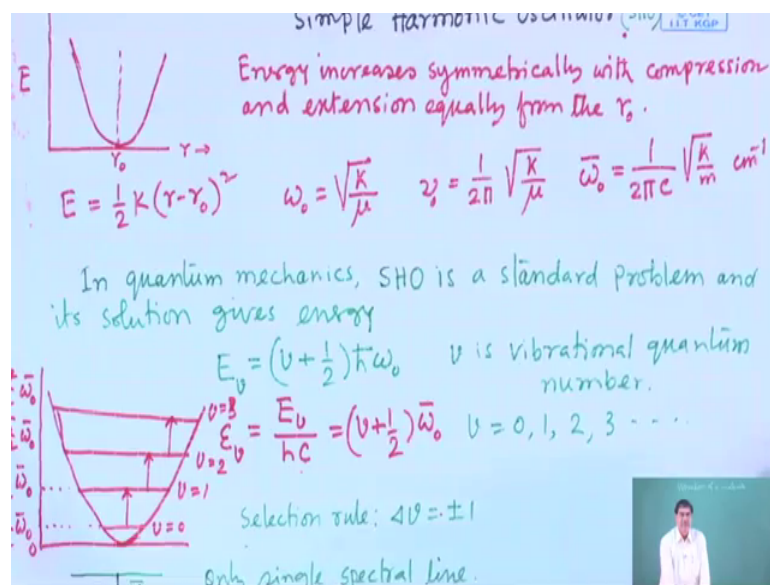 Simple Harmonic Oscillator (SHO)
IIT KGP
E
r₀
r→
Energy increases symmetrically with compression
and extension equally from the r₀.
E = 1/2 K(r-r₀)²
ω₀ = √(K/μ)
ν₀ = 1/2π √(K/μ)
ω̄₀ = 1/2πc √(K/m) cm⁻¹
In quantum mechanics, SHO is a standard problem and
its solution gives energy
E_υ = (υ+1/2)ħω₀
υ is vibrational quantum
number.
ε_υ = E_υ/hc = (υ+1/2)ω̄₀
υ = 0, 1, 2, 3 ----
ω̄₀
υ=3
ω̄₀
υ=2
ω̄₀
υ=1
ω̄₀
υ=0
0
Selection rule: Δυ = ±1
Only single spectral line.